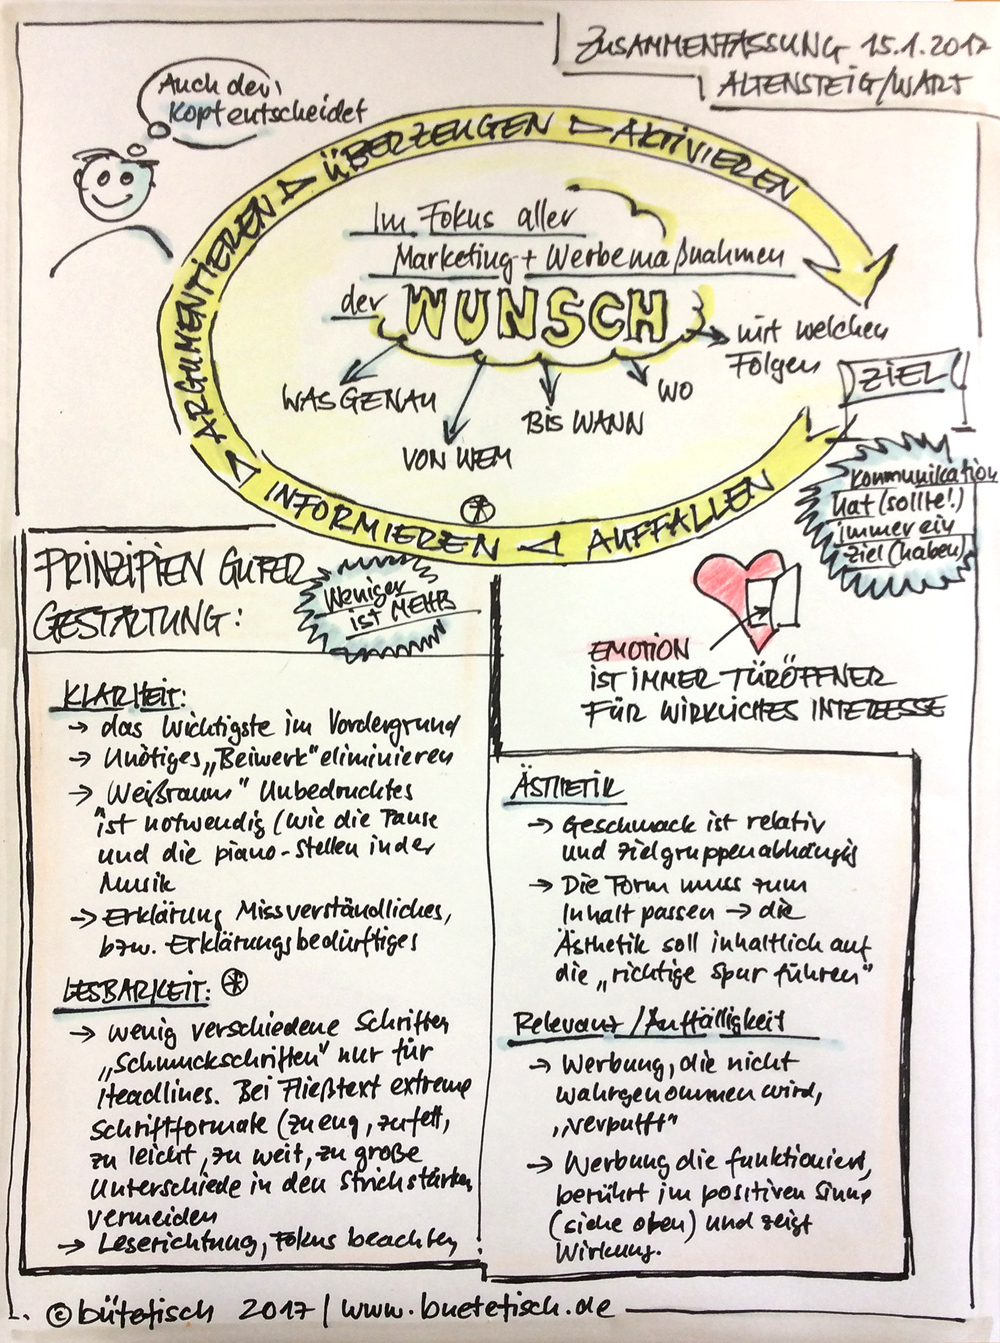 ZUSAMMENFASSUNG 15.1.2017
ALTENSTEIG/WART
Auch der
Kopf entscheidet
AUFFALLEN
INFORMIEREN
ARGUMENTIEREN
ÜBERZEUGEN
AKTIVIEREN
Im Fokus aller
Marketing + Werbemaßnahmen
der WUNSCH
WAS GENAU
VON WEM
BIS WANN
WO
mit welchen
Folgen
ZIEL
Kommunikation
hat (sollte!)
immer ein
Ziel (haben)
EMOTION
IST IMMER TÜRÖFFNER
FÜR WIRKLICHES INTERESSE
PRINZIPIEN GUTER
GESTALTUNG:
Weniger
ist MEHR
KLARHEIT:
→ das Wichtigste im Vordergrund
→ Unnötiges „Beiwerk“ eliminieren
→ „Weißraum“ Unbedrucktes
ist notwendig (wie die Pause
und die piano-Stellen in der
Musik
→ Erklärung Missverständliches,
bzw. Erklärungsbedürftiges
LESBARKEIT:
→ wenig verschiedene Schriften
„Schmuckschriften“ nur für
Headlines. Bei Fließtext extreme
Schriftformate (zu eng, zu fett,
zu leicht, zu weit, zu große
Unterschiede in den Strichstärken
vermeiden
→ Leserichtung, Fokus beachten
ÄSTHETIK
→ Geschmack ist relativ
und zielgruppenabhängig
→ Die Form muss zum
Inhalt passen → die
Ästhetik soll inhaltlich auf
die „richtige Spur führen“
Relevanz/Auffälligkeit
→ Werbung, die nicht
wahrgenommen wird,
„verpufft“
→ Werbung die funktioniert,
berührt im positiven Sinne
(siehe oben) und zeigt
Wirkung.
© bütefisch 2017 | www.buetefisch.de